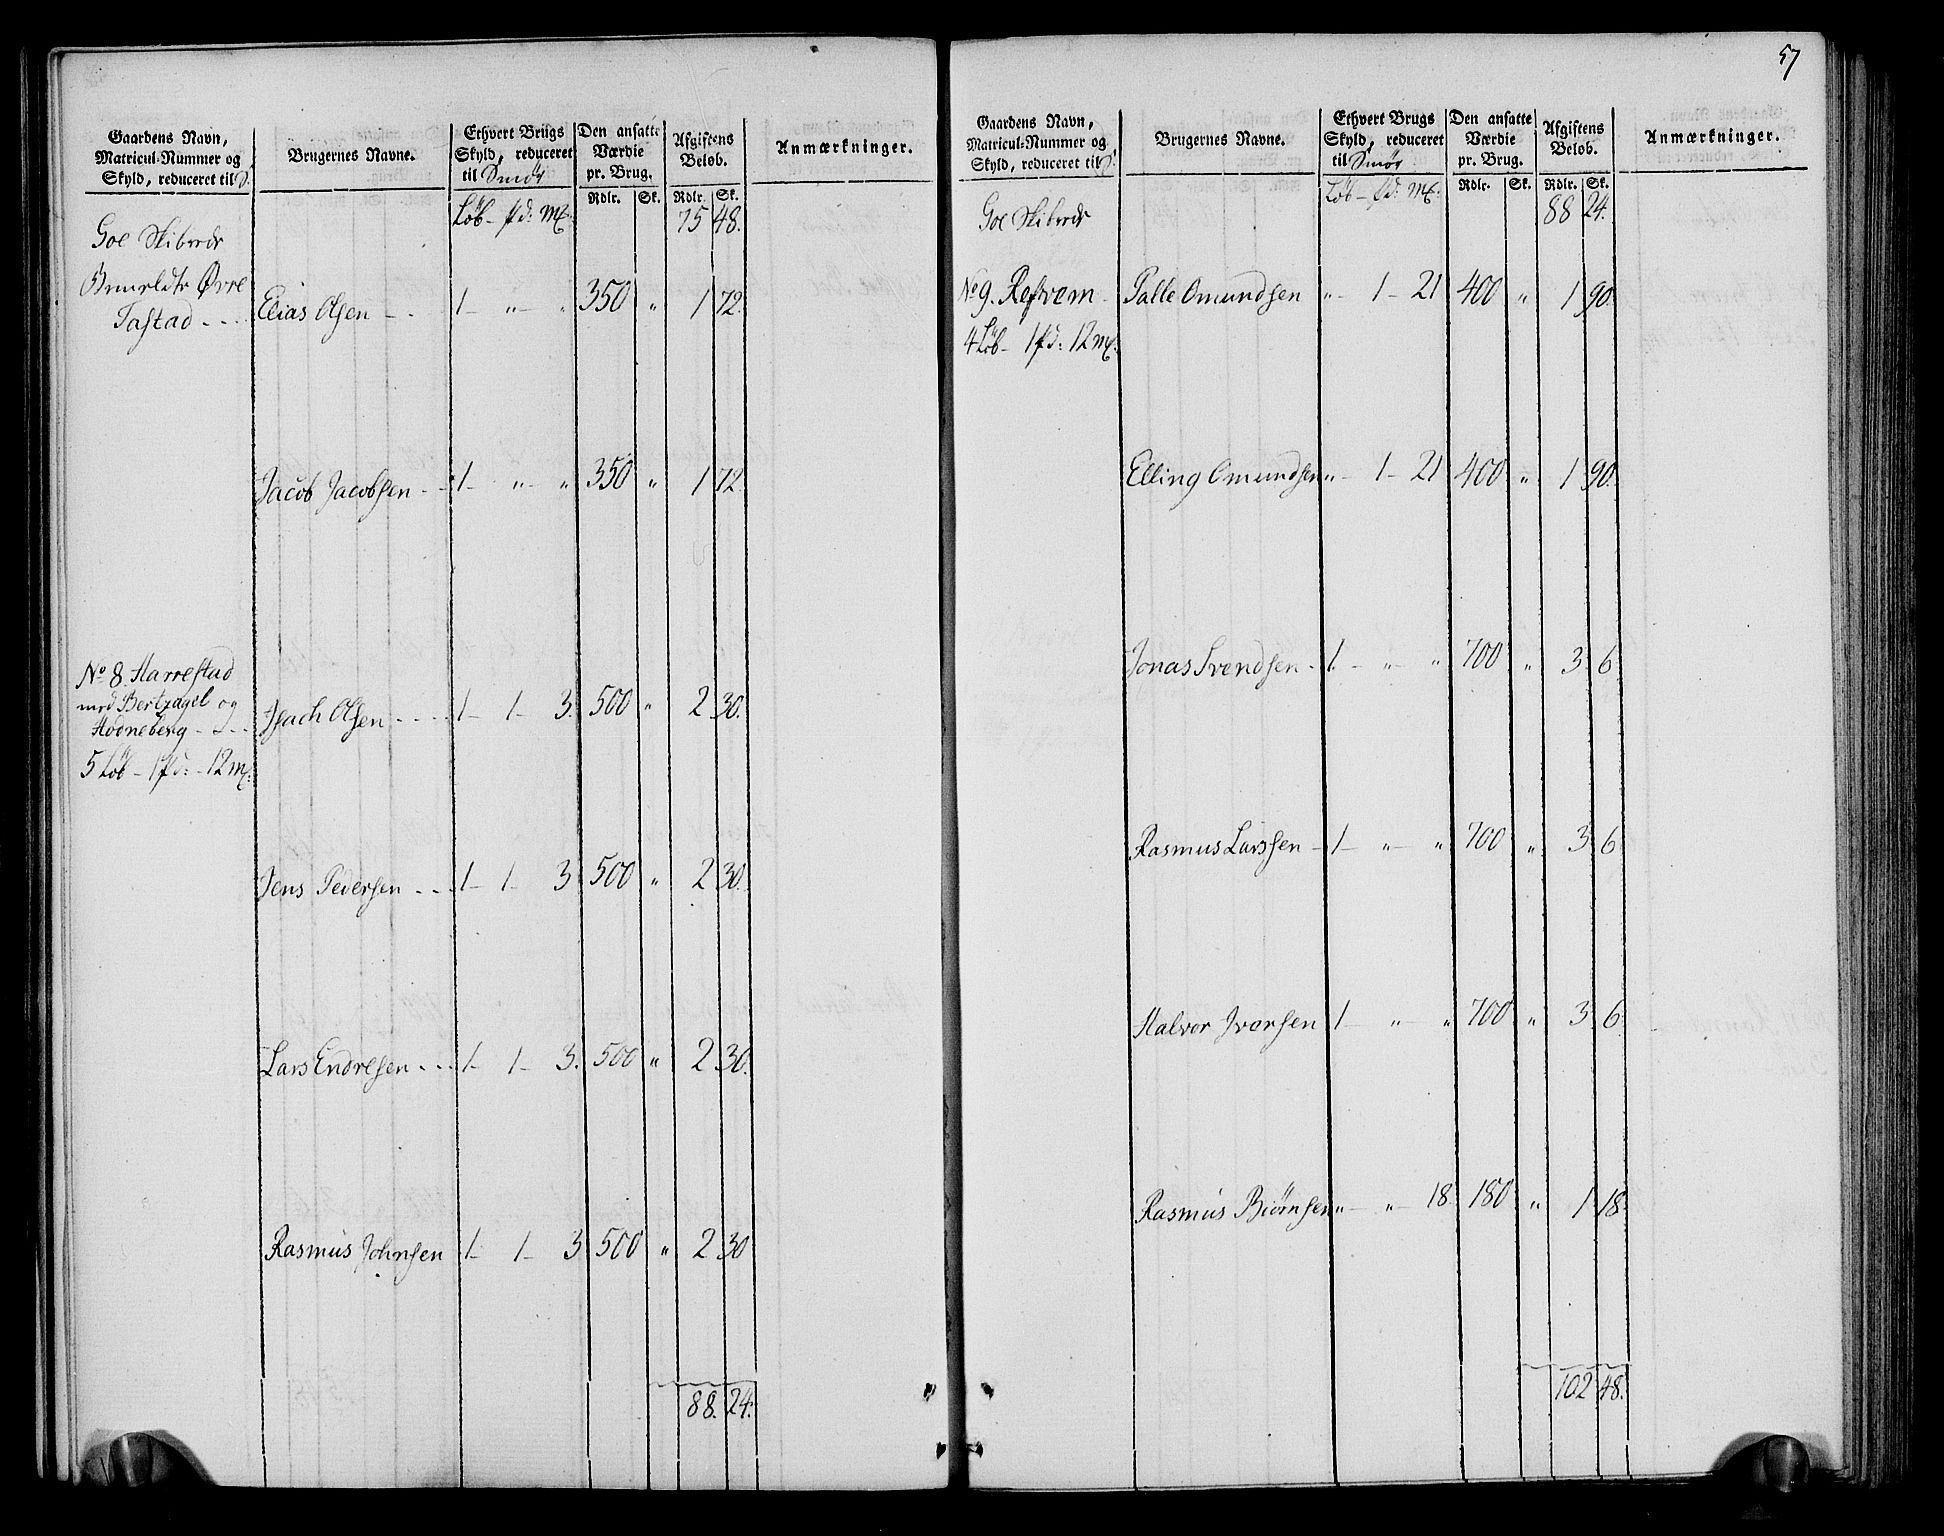 Gaardens Navn,
Matricul-Nummer og
Skyld, reduceret til S.
Brugernes Navne.
Ethvert Brugs
Skyld, reduceret
til Smör
Den ansatte
Værdie
pr. Brug.
Afgiftens
Beløb.
Anmærkninger.
Rdlr. Sk. Rdlr. Sk.
Löb - pd: Mk: 75 48.
Goe Skibrede
Øvre
Tastad - - - Elias Olsen - - 1 - " - " 350 " 1 72.
Jacob Jacobsen - - 1 - " - " 350 " 1 72.
No 8. Harrestad
med Bertzagel og
Hodneberg - - - Isach Olsen - - - - 1 - 1 - 3. 500 " 2 30.
5 Löb - 1 pd: - 12 mk:
Jens Pedersen - - - 1 - 1 - 3 500 " 2 30.
Lars Endresen - - - 1 - 1 - 3. 500 " 2 30.
Rasmus Johnsen 1 - 1 - 3 500 " 2 30
88. 24.
57
Gaardens Navn,
Matricul-Nummer og
Skyld, reduceret til S.
Brugernes Navne.
Ethvert Brugs
Skyld, reduceret
til Smör
Den ansatte
Værdie
pr. Brug.
Afgiftens
Beløb.
Anmærkninger.
Rdlr. Sk. Rdlr. Sk.
Löb - pd: Mk: 88 24.
Goe Skibrede
No 9. Refvem - Palle Omundsen " - 1 - 21 400 " 1 90.
4 Löb - 1 pd: 12 mk:
Elling Omundsen " - 1 - 21 400 " 1 90.
Jonas Svendsen - 1. - " - " 700 " 3 6
Rasmus Larssen - 1 - " - " 700 " 3 6
Halvor Iversen 1 - " - " 700 " 3 6.
Rasmus Biørnsen " - " - 18. 180 " 1 18.
102 48.